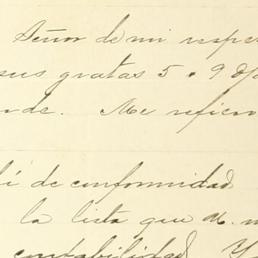 Señor de mi respe
sus gratas 5 o 9 dp
nde. Me refier
lí de conformidad
la lista que U. m
contabilidad. Y